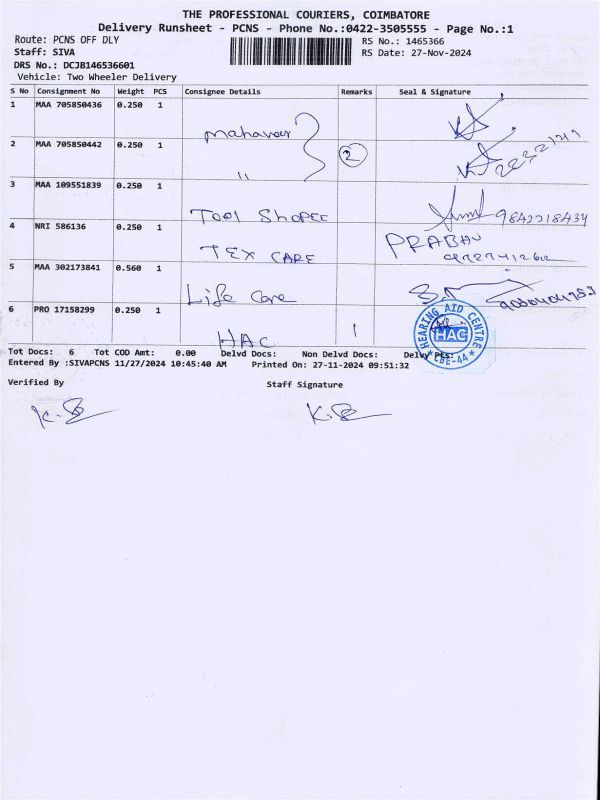 THE PROFESSIONAL COURIERS, COIMBATORE
Delivery Runsheet - PCNS - Phone No.:0422-3505555 - Page No.:1
Route: PCNS OFF DLY RS No.: 1465366
Staff: SIVA RS Date: 27-Nov-2024
DRS No.: DCJB146536601
Vehicle: Two Wheeler Delivery
S No Consignment No Weight PCS Consignee Details Remarks Seal & Signature
1 MAA 705850436 0.250 1 mahaveer
2 MAA 705850442 0.250 1 " 2
3 MAA 109551839 0.250 1 Tool Shopee 9842218434
4 NRI 586136 0.250 1 TEX CARE PRABHU
5 MAA 302173841 0.560 1 Life Care
6 PRO 17158299 0.250 1 HAC 1
HEARING AID CENTRE
HAC
CBE-44
Tot Docs: 6 Tot COD Amt: 0.00 Delvd Docs: Non Delvd Docs: Delvy Pcs:
Entered By :SIVAPCNS 11/27/2024 10:45:40 AM Printed On: 27-11-2024 09:51:32
Verified By Staff Signature